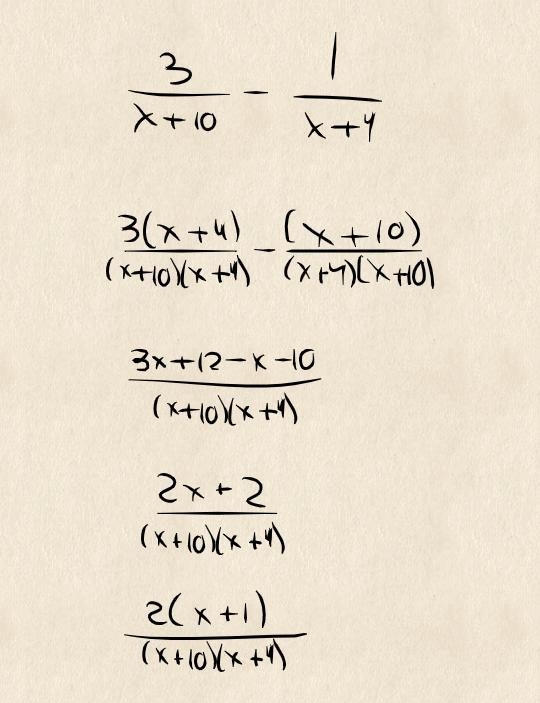 3/(x+10) - 1/(x+4)
3(x+4)/((x+10)(x+4)) - (x+10)/((x+4)(x+10))
(3x+12-x-10)/((x+10)(x+4))
(2x+2)/((x+10)(x+4))
2(x+1)/((x+10)(x+4))